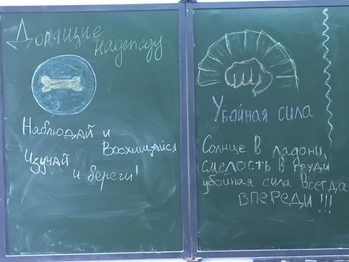 Дарящие
надежду
Наблюдай и
Восхищайся
Изучай
и береги!
Убойная сила
Солнце в ладони,
смелость в груди
убойная сила всегда
ВПЕРЕДИ!!!